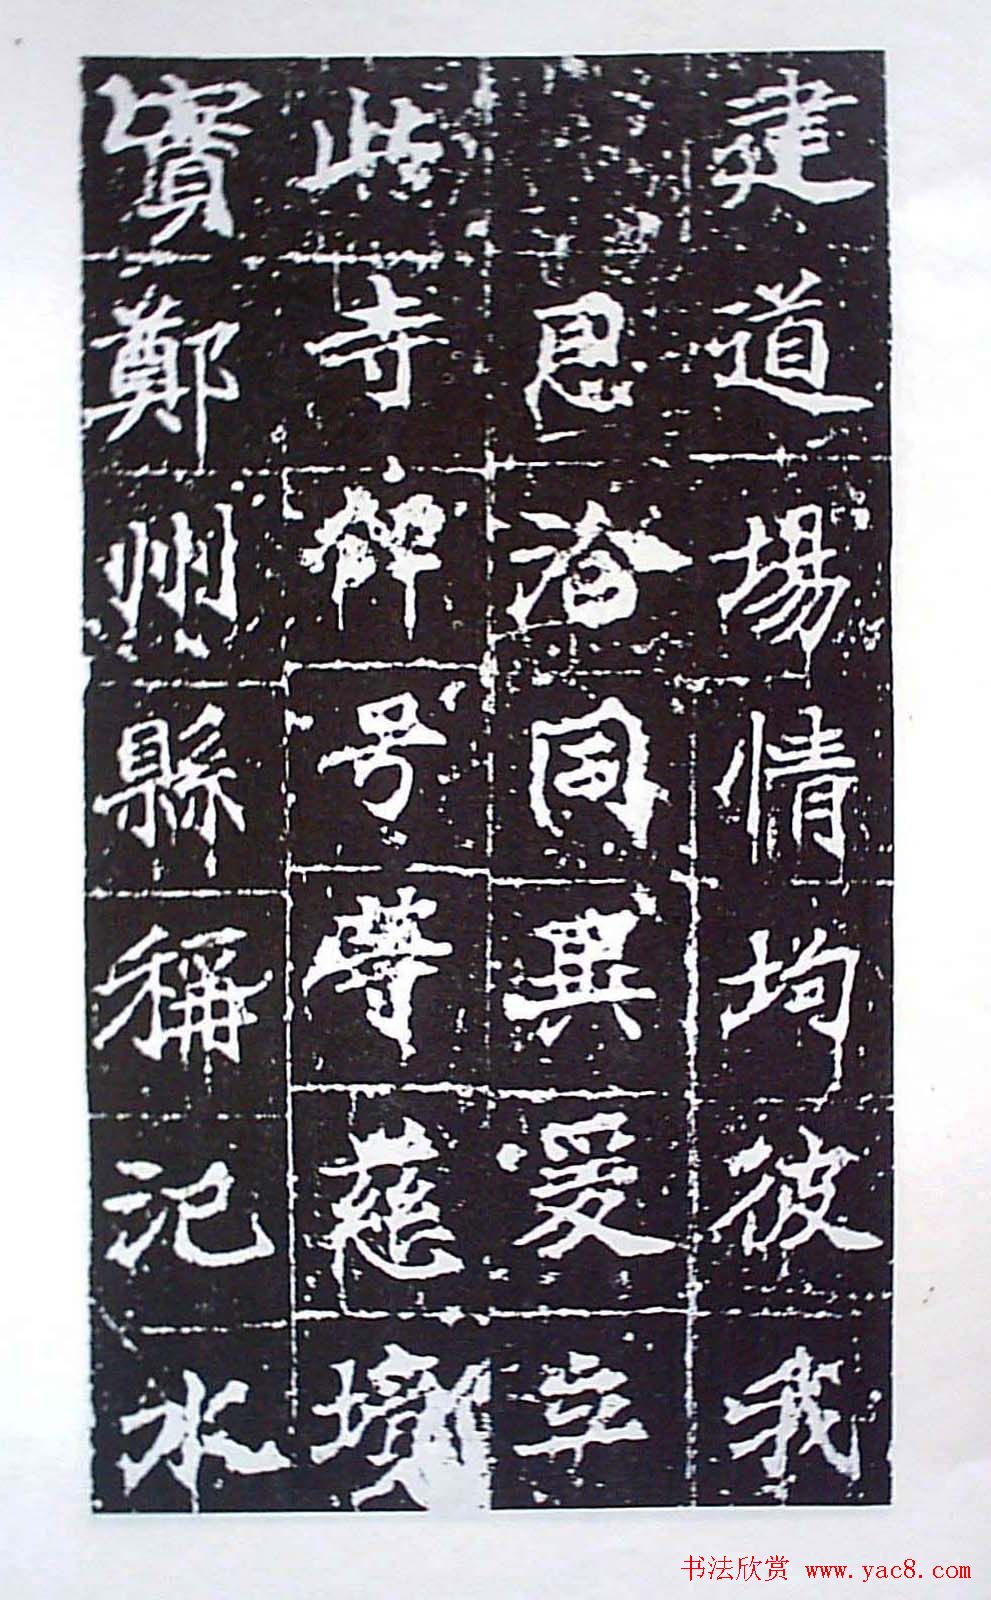 建道場情均彼我
恩洽同異爰立
此寺碑号等慈境
實鄭州縣稱汜水
书法欣赏 www.yac8.com